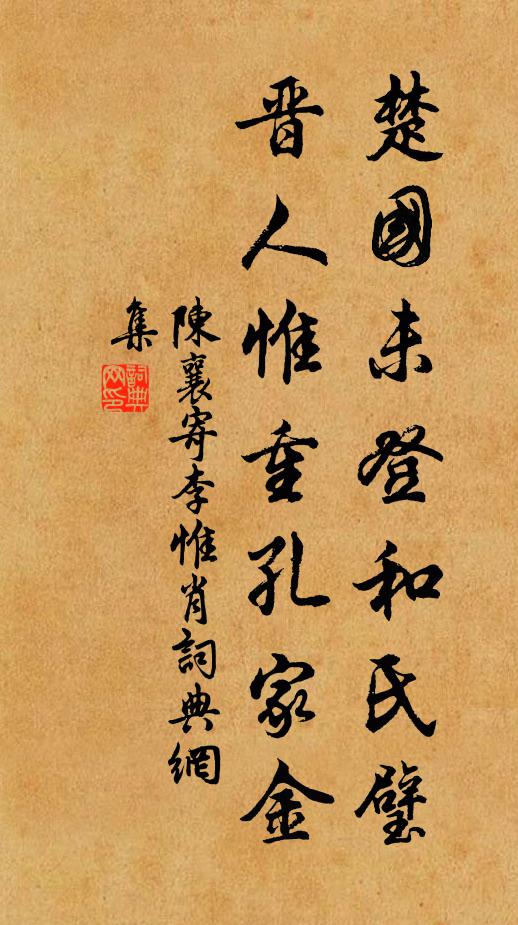 楚國未登和氏璧
晋人惟重孔家金
陳襄寄李惟肖詞典網
集
詞典
网印